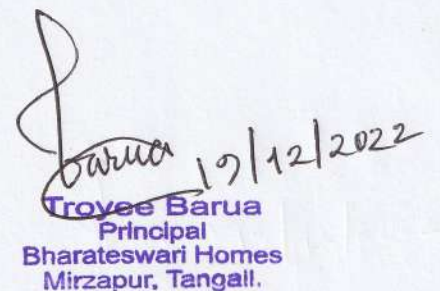 Barua 19/12/2022
Troyee Barua
Principal
Bharateswari Homes
Mirzapur, Tangail.